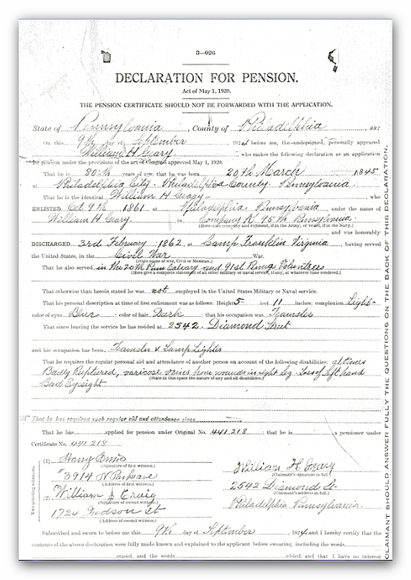 3—026
DECLARATION FOR PENSION.
Act of May 1, 1920.
THE PENSION CERTIFICATE SHOULD NOT BE FORWARDED WITH THE APPLICATION.
State of Pennsylvania, County of Philadelphia, ss:
On this 9th day of September before me, the undersigned, personally appeared
William H. Geary, who makes the following declaration as an application
for pension under the provisions of the act of Congress approved May 1, 1920.
That he is 80th years of age; that he was born 20th March 1845
at Philadelphia City, Philadelphia County Pennsylvania
That he is the identical William H Geary who
ENLISTED Oct 9th 1861 at Philadelphia Pennsylvania under the name of
William H Geary, in Company K 95th Pennsylvania
and was honorably
DISCHARGED 3rd February 1862, at Camp Franklin Virginia, having served
the United States, in the Civil War War.
That he also served in the 20th Penn and 91st Volunteers
That otherwise than herein stated he was not employed in the United States Military or Naval service.
That his personal description at time of first enlistment was as follows: Height 5 feet 11 inches; complexion Light
color of eyes Blue; color of hair Dark; that his occupation was Teamster
That since leaving the service he has resided at 2542 Diamond Street
and his occupation has been Teamster & Lamp Lighter
That he requires the regular personal aid and attendance of another person on account of the following disabilities: at times
Badly Ruptured, varicose veins from wounds in right leg. Loss of left hand
Bad Eyesight
That he has required such regular aid and attendance since
That he has applied for pension under Original No. 441,218; that he is a pensioner under
Certificate No. 441,218
(1) Harry Ennis
3914 N
William H Geary
(2) William J Craig
2542 Diamond St
1724 St
Philadelphia Pennsylvania
Subscribed and sworn to before me this 9th day of September 1924, and I hereby certify that the
contents of the above declaration were fully made known and explained to the applicant before swearing, including the words
erased, and the words added; and that I have no interest
CLAIMANT SHOULD ANSWER FULLY THE QUESTIONS ON THE BACK OF THIS DECLARATION.